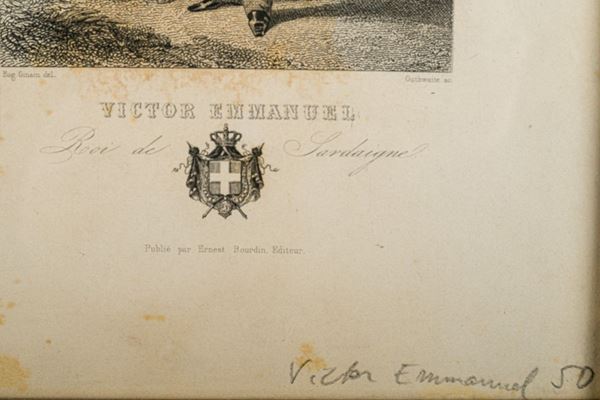 Eug. Ginain del.
Outhwaite sc.
VICTOR EMMANUEL
Roi de Sardaigne.
Publié par Ernest Bourdin, Editeur.
Victor Emmanuel 50